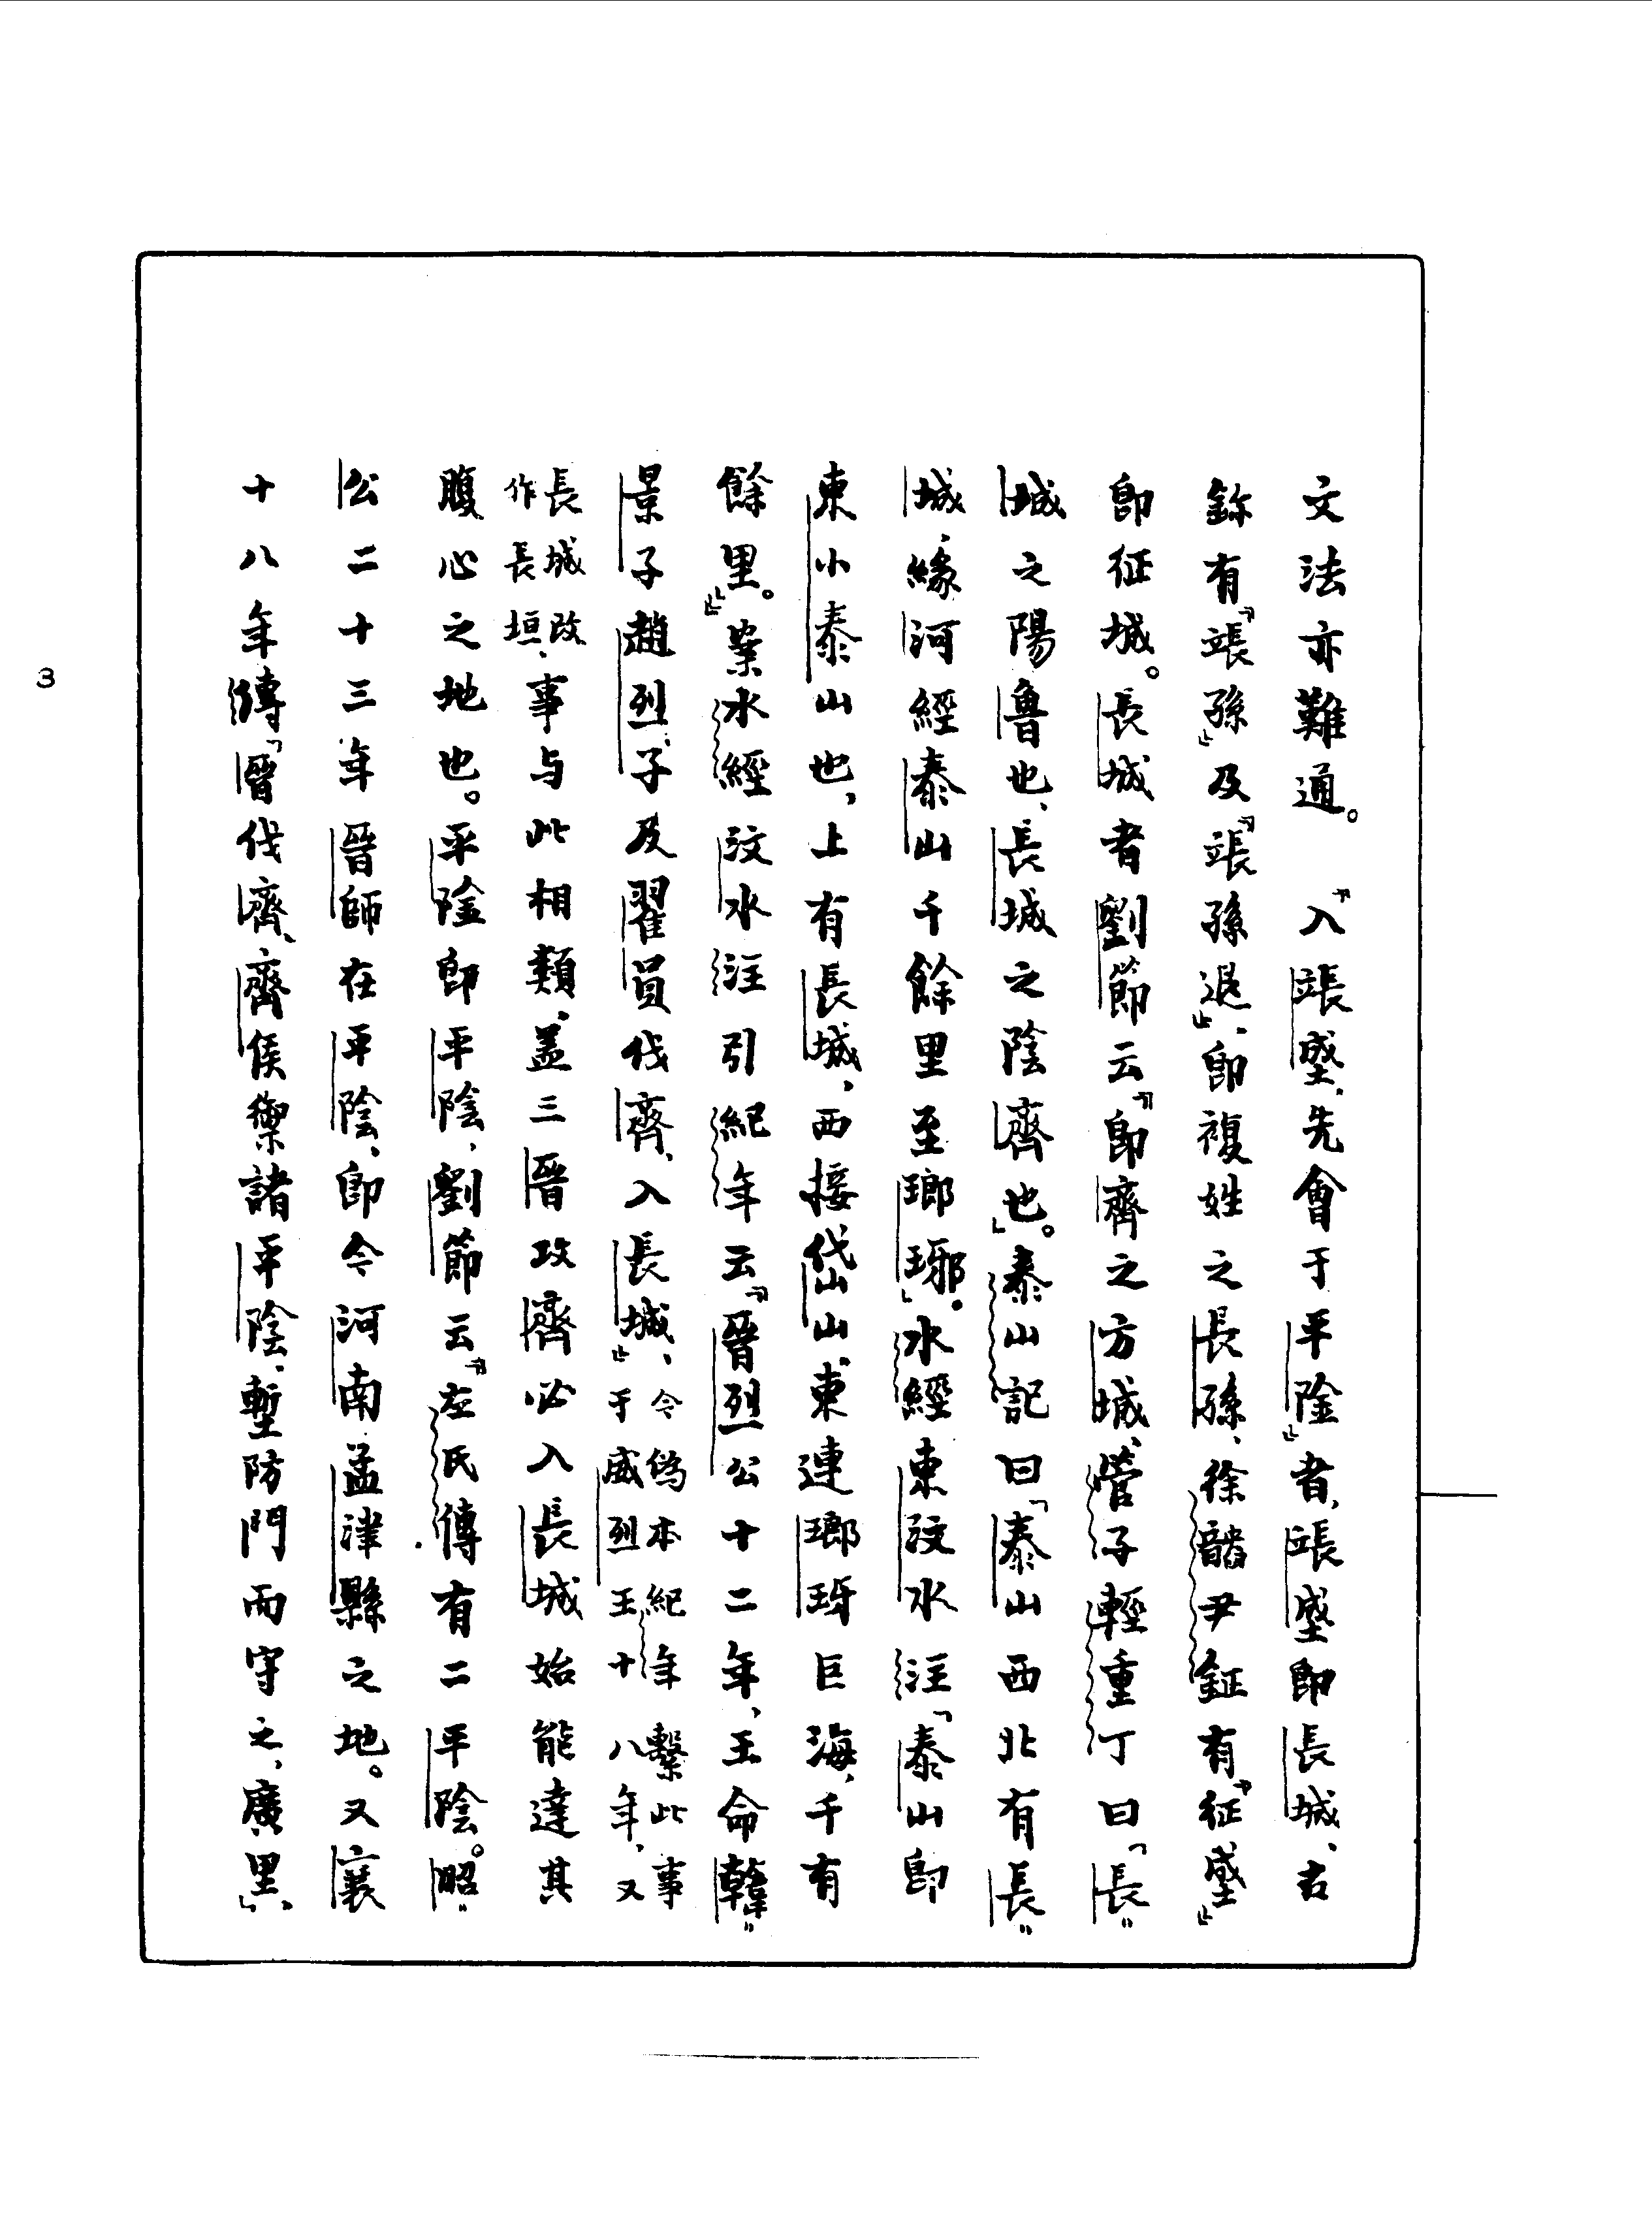 文法亦難通。『入𨱗𡍳、先會于平隂』者、𨱗𡍳即長城、古
鉨有『𨱗孫』及『𨱗孫退』、即複姓之長孫、徐𬰹尹鉦有『征𡍳』
即征城。長城者劉節云『即齊之方城、管子輕重丁曰「長
城之陽魯也、長城之陰齊也」。泰山記曰「泰山西北有長
城、緣河經泰山千餘里至瑯琊」。水經東汶水注「泰山即
東小泰山也、上有長城、西接岱山、東連瑯玡巨海、千有
餘里。」』案水經汶水注引紀年云『晉烈公十二年、王命韓
景子趙烈子及翟員伐齊、入長城』、今僞本紀年繫此事
于威烈王十八年、又
長城改
作長垣、事与此相類、盖三晉攻齊必入長城始能達其
腹心之地也。平隂即平陰、劉節云『左氏傳有二平陰。昭
公二十三年晉師在平陰、即今河南孟津縣之地。又襄
十八年傳「晉伐齊、齊侯禦諸平陰、塹防門而守之、廣里」、
3